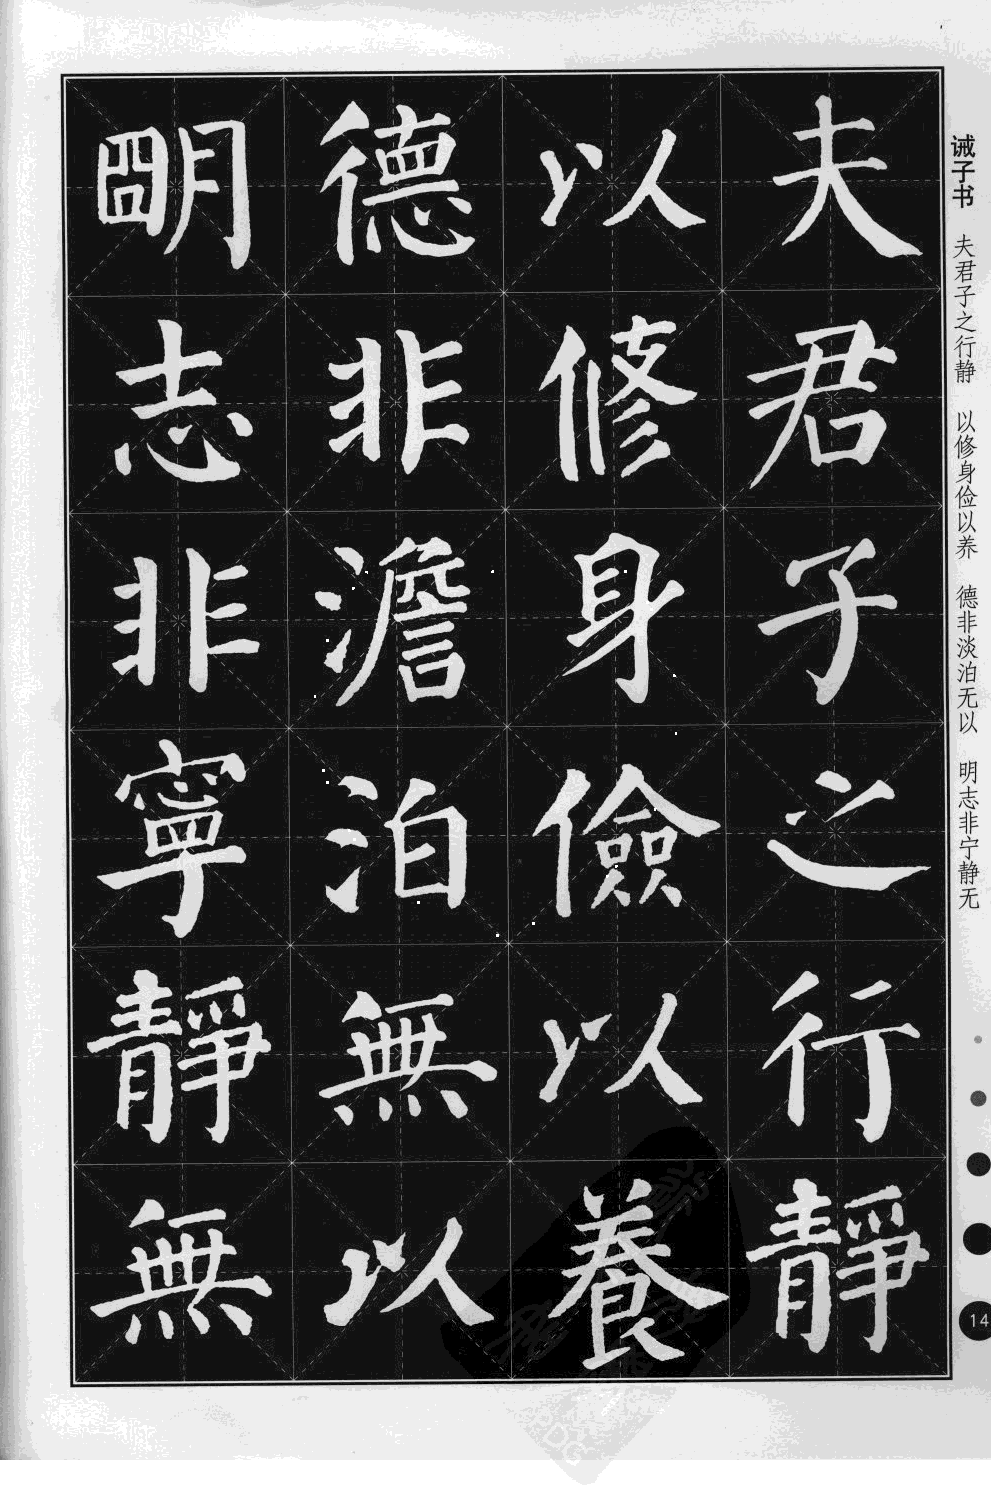 夫君子之行靜
以修身儉以養
德非澹泊無以
明志非寧靜無
诫子书 夫君子之行静 以修身俭以养 德非淡泊无以 明志非宁静无
14